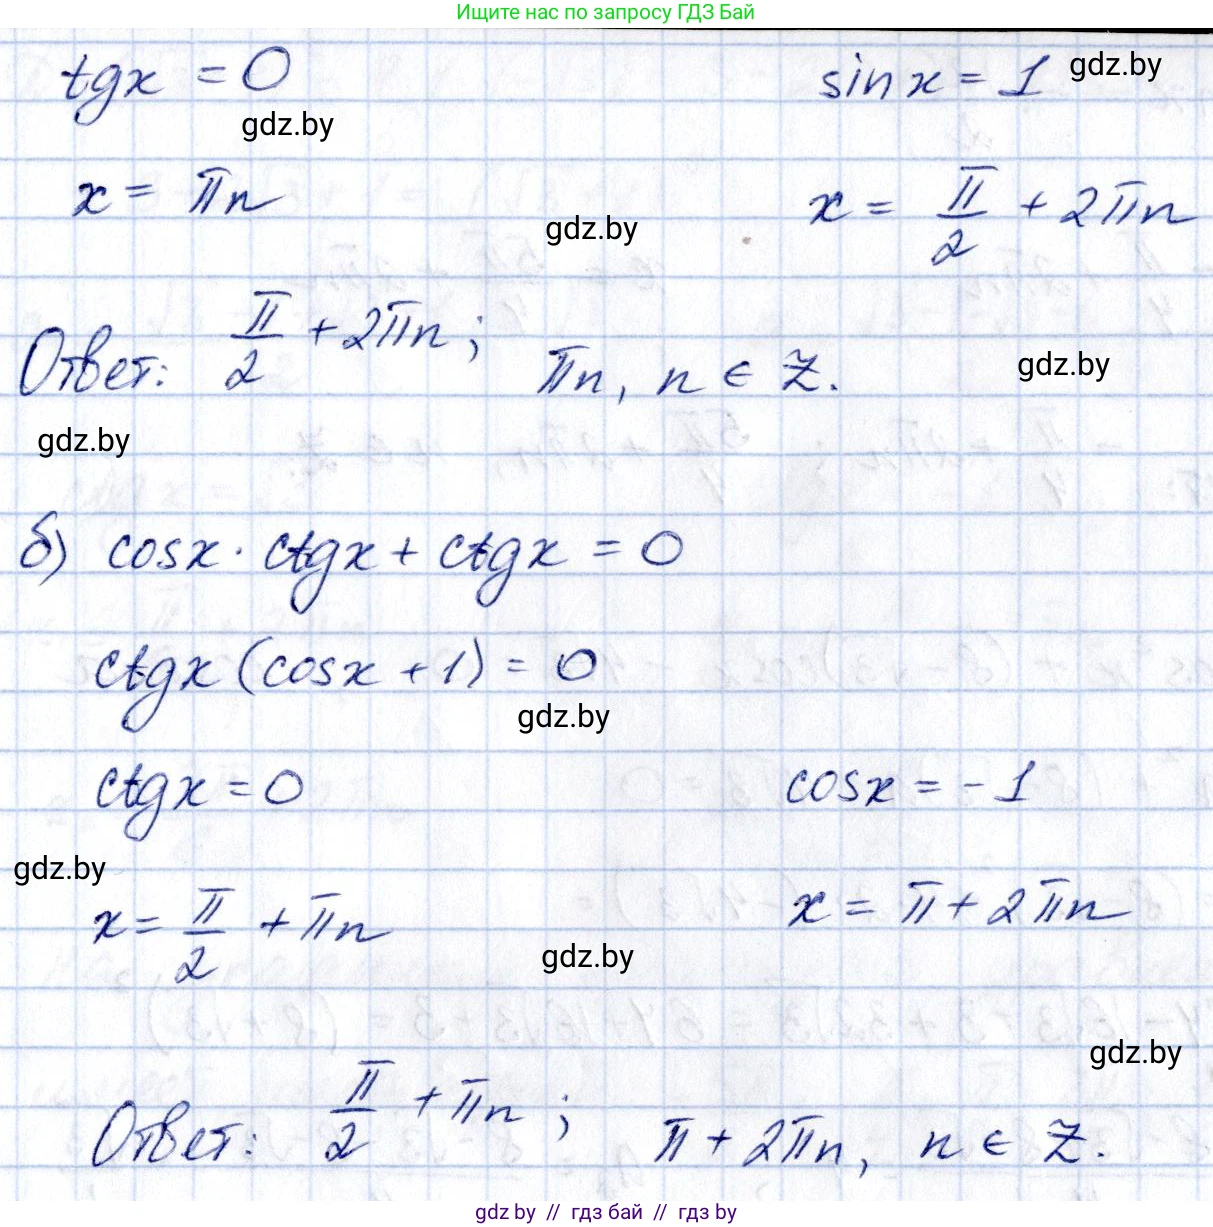 Ищите нас по запросу ГДЗ Бай
tgx = 0 sin x = 1 gdz.by
gdz.by
x = πn x = π/2 + 2πn
gdz.by
Ответ: π/2 + 2πn; πn, n ∈ Z. gdz.by
gdz.by
б) cosx · ctgx + ctgx = 0
ctgx (cosx + 1) = 0
gdz.by
ctgx = 0 cosx = -1
gdz.by
x = π/2 + πn x = π + 2πn
gdz.by
gdz.by
Ответ: π/2 + πn; π + 2πn, n ∈ Z.
gdz.by // гдз бай // gdz.by